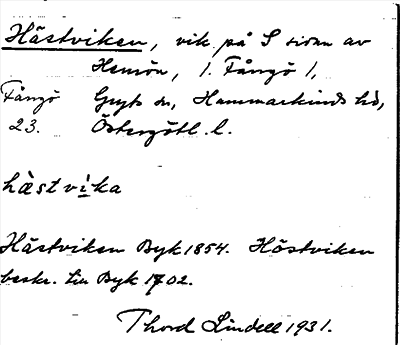 Hästviken, vik på S sidan av
Hemön, l. Fångö l,
Fångö Gryts sn, Hammarkinds hd,
23. Östergötl. l.
hàst vi̱ka
Hästviken Byk 1854. Höstviken
beskr. till Byk 1702.
Thord Lindell 1931.